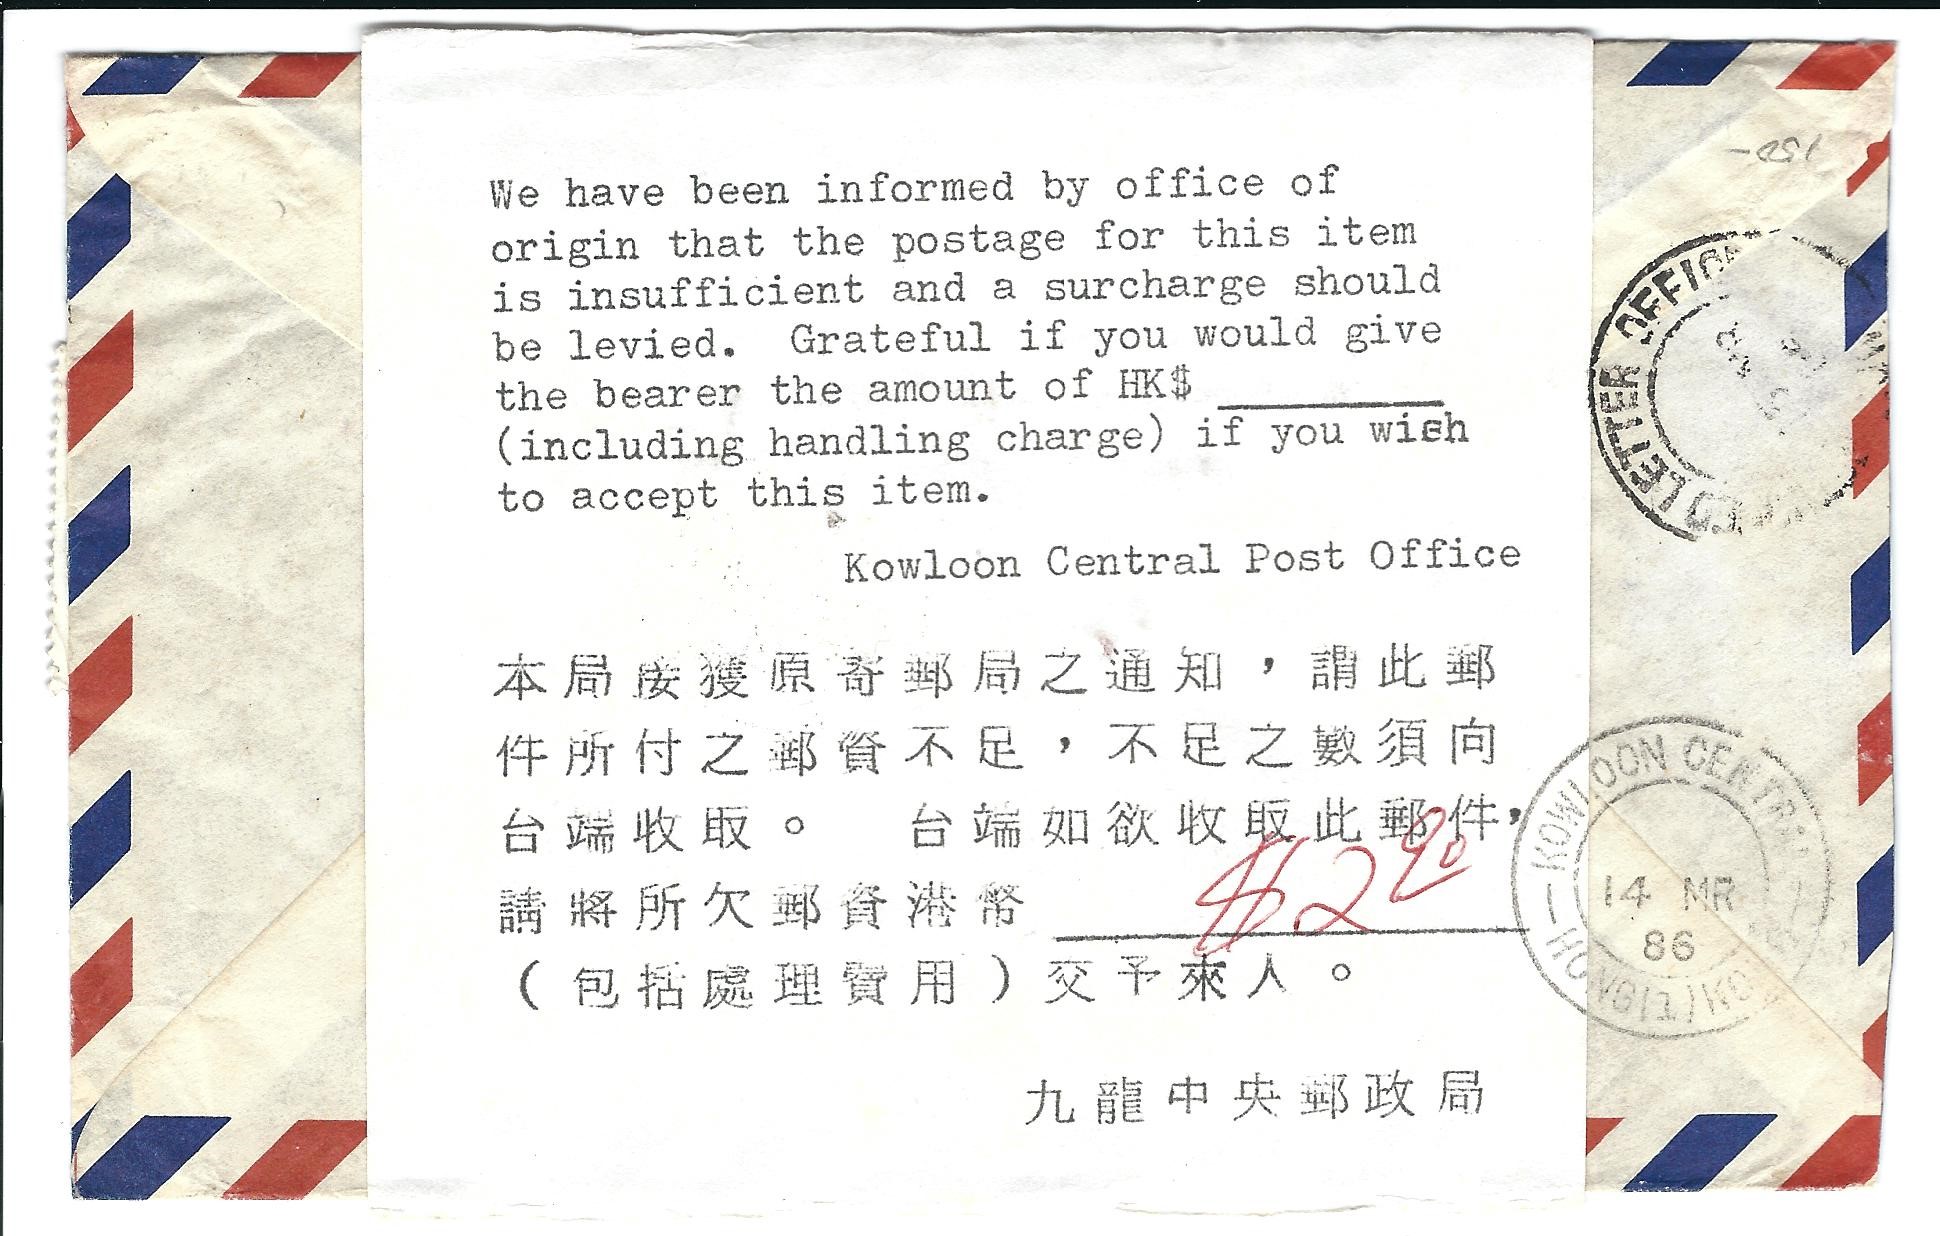 We have been informed by office of
origin that the postage for this item
is insufficient and a surcharge should
be levied. Grateful if you would give
the bearer the amount of HK$ ________
(including handling charge) if you wish
to accept this item.
Kowloon Central Post Office
本局接獲原寄郵局之通知，謂此郵
件所付之郵資不足，不足之數須向
台端收取。 台端如欲收取此郵件，
請將所欠郵資港幣 $2 90
（包括處理費用）交予來人。
九龍中央郵政局
150-
LETTER OFFICE
KOWLOON CENTRAL
14 MR
86
HONG KONG